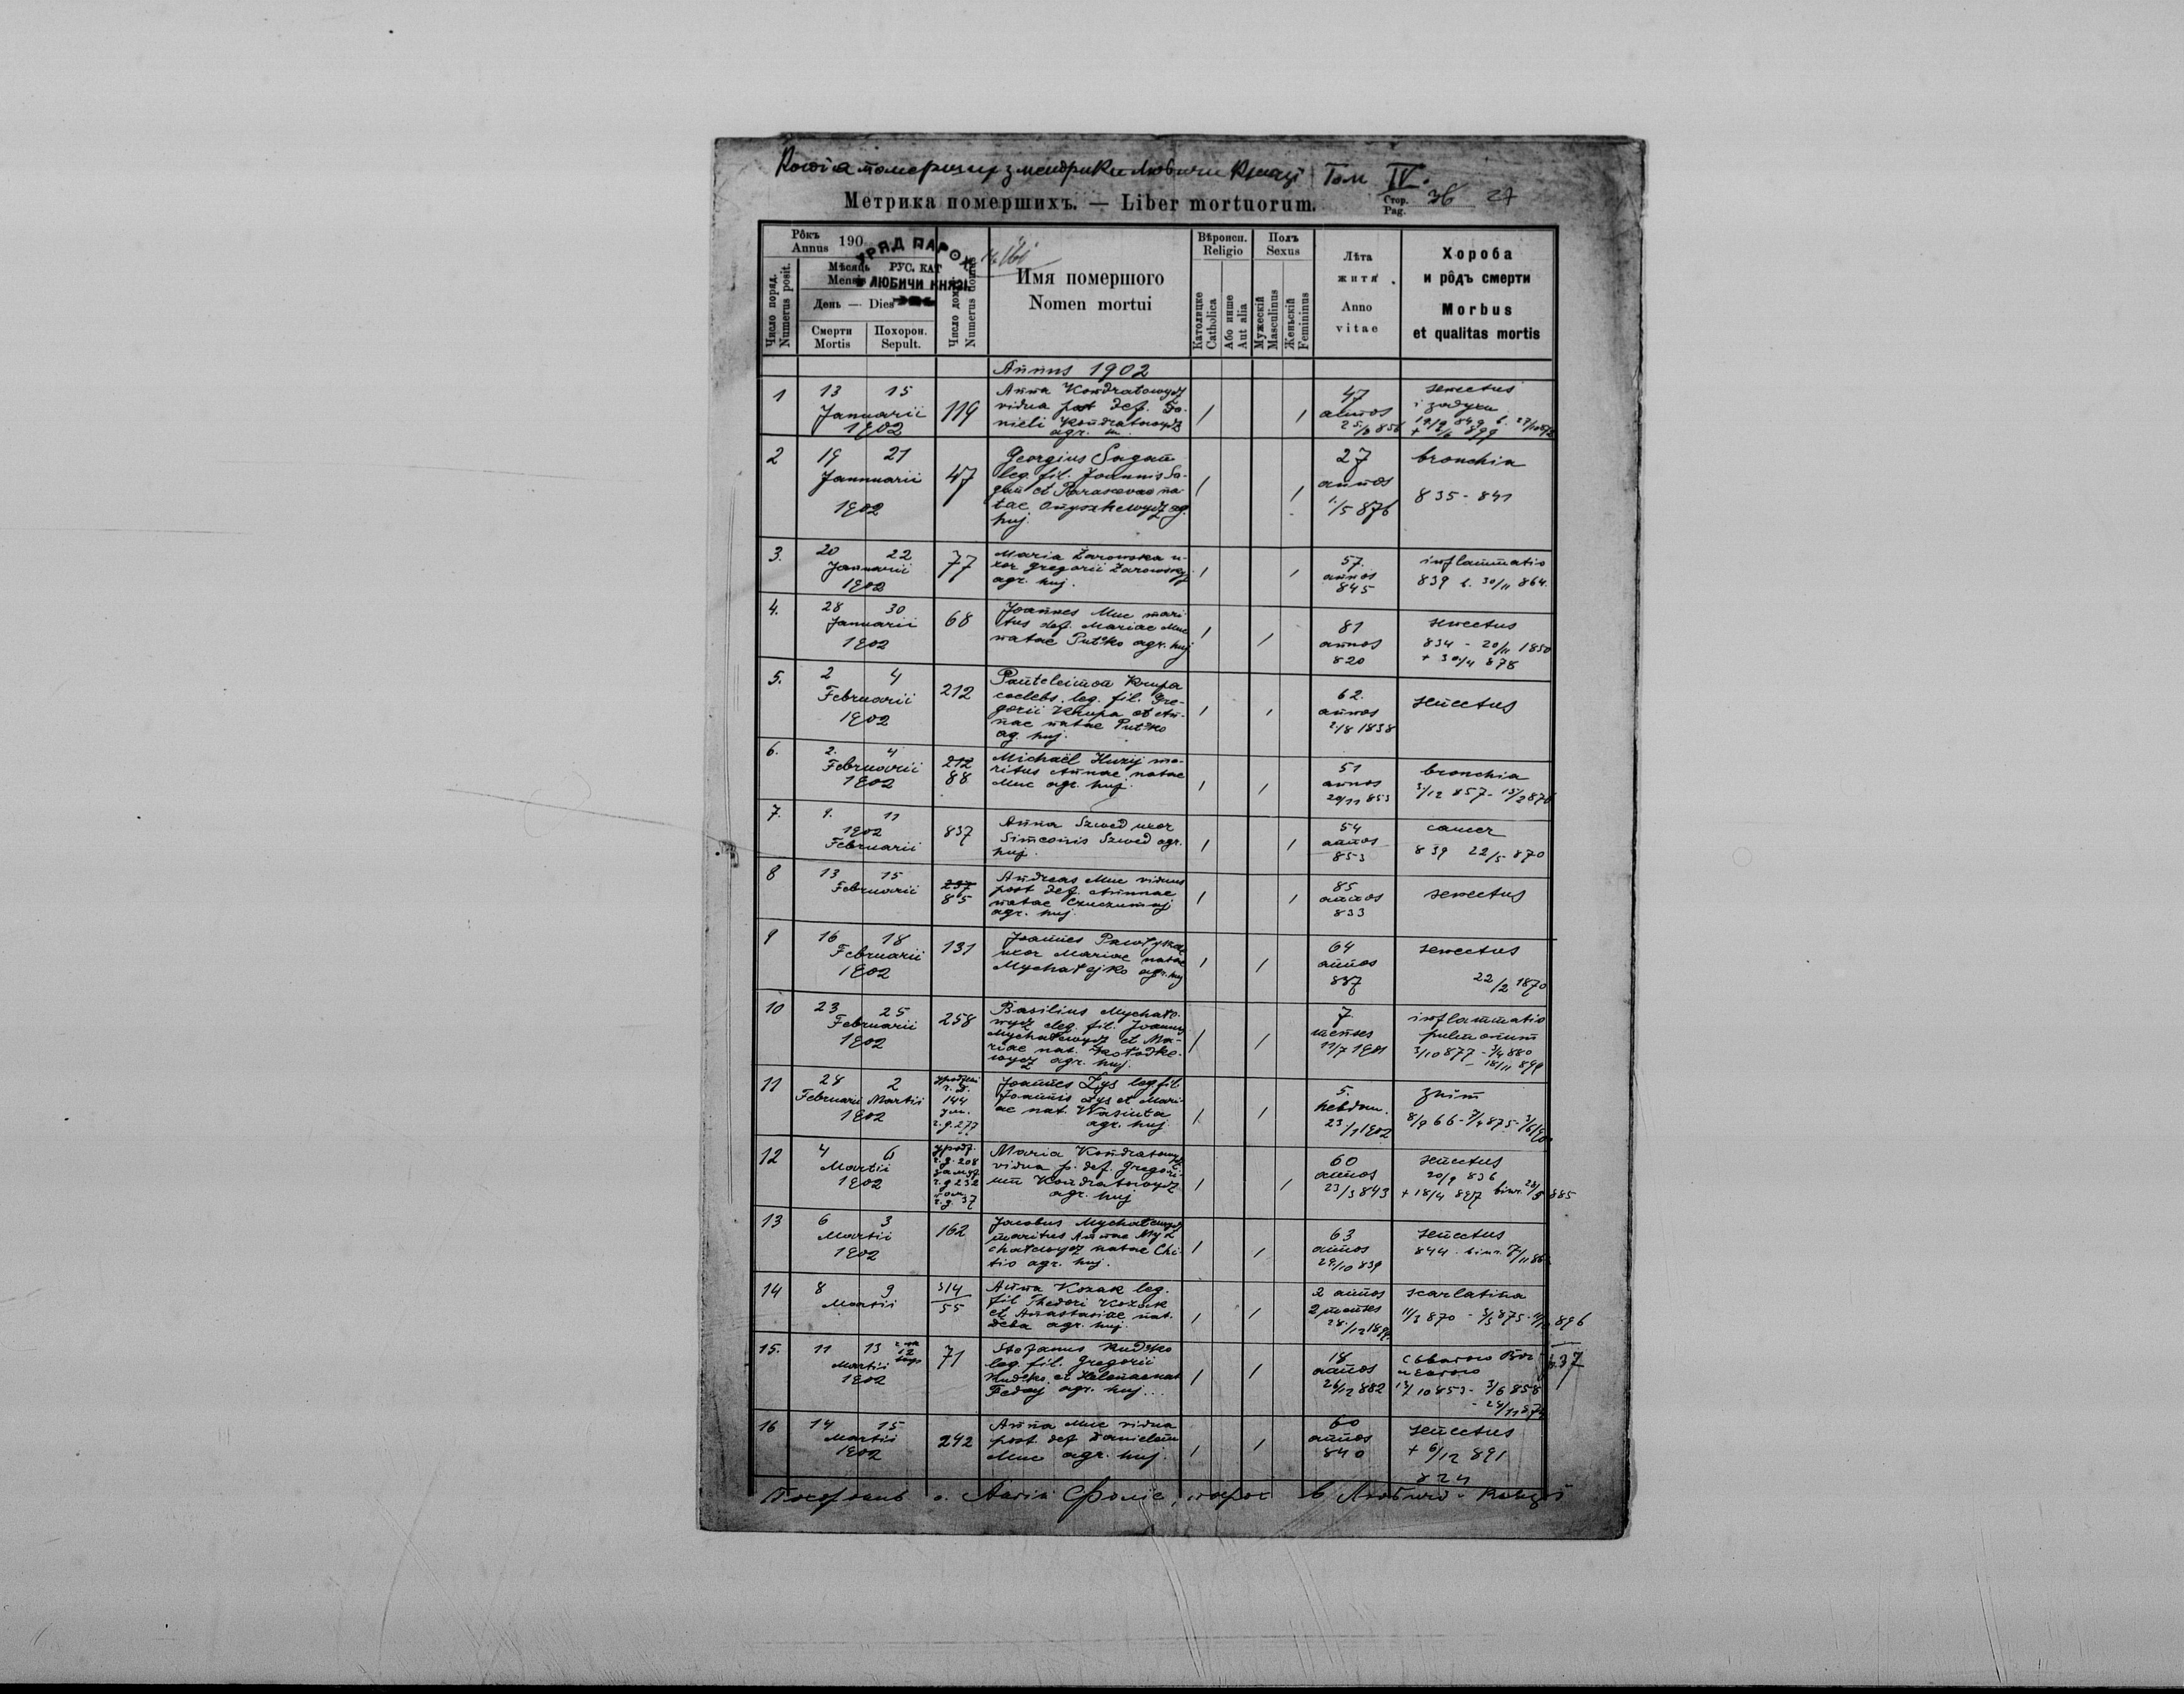 Копія померших з метрики Любичи Князі Том IV.
Метрика померших. — Liber mortuorum. Стор. Pag. 36 27
Рôкъ Annus 190
УРЯД ПАРОХ
РУС. КАТ
ЛЮБИЧИ КНЯЗІ
Число поряд. Numerus posit.
Мѣсяць Mensis
День — Dies
Смерти Mortis
Похорон. Sepult.
Число дому Numerus domus
Имя помершого
Nomen mortui
Вѣроисп. Religio
Католицке Catholica
Або инше Aut alia
Полъ Sexus
Мужескій Masculinus
Женьскій Femininus
Лѣта житя
Anno vitae
Хороба
и рôдъ смерти
Morbus
et qualitas mortis
Annus 1902
1 13 15 Januarii 1902 119
Anna Kondratowycz
vidua post def. Da-
nieli Kondratowycz
agr. h.
/ / 47 annos
senectus
і задуха
2 19 21 Jannuarii 1902 47
Georgius Sagan
leg. fil. Joannis Sa-
gan et Parascevae na-
tae Onyszkewycz ag.
huj.
/ / 27 annos 1/5 876
bronchia
835 - 841
3. 20 22 Januarii 1902 77
Maria Żarowska u-
xor Gregorii Żarowskyj
agr. huj.
/ / 57. annos 845
inflammatio
839 b. 30/11 864.
4. 28 30 Januarii 1902 68
Joannes Muc mari-
tus def. Mariae Muc
natae Put'ko agr. huj
/ / 81 annos 820
senectus
834 - 20/11 1850
+ 30/4 878
5. 2 4 Februarii 1902 212
Panteleimon Krupa
coelebs leg. fil. Gre-
gorii Krupa et An-
nae natae Put'ko
ag. huj.
/ / 62. annos 2/8 1838
senectus
6. 2. 4 Februarii 1902 212 88
Michaël Huzij ma-
ritus Annae natae
Muc agr. huj.
/ / 51 annos 20/11 853
bronchia
7. 9. 11 1902 Februarii 837
Anna Szwed uxor
Simeonis Szwed agr.
huj.
/ / 54 annos 853
cancer
839 22/5 870
8 13 15 Februarii 237 85
Andreas Muc viduus
post def. Annae
natae
agr. huj.
/ / 85 annos 833
senectus
9 16 18 Februarii 1902 131
Joannes
uxor Mariae natae
Mychałejko agr. huj
/ / 64 annos 837
senectus
22/2 1870
10 23 25 Februarii 1902 258
Basilius Mychałe-
wycz leg. fil. Joannis
Mychałewycz et Ma-
riae nat.
wycz agr. huj.
/ / 7 menses 11/7 1901
inflammatio
pulmonum
3/10 877 - 3/4 880
- 18/11 899
11 28 2 Februarii Martii 1902 144 ч.д. 277
Joannes Zys leg. fil.
Joannis Zys et Mari-
ae nat. Wasiuta
agr. huj.
/ / 5. hebdom. 23/1 1902
12 4 6 Martii 1902 ч.д. 208 ч.д. 232 ч.д. 37
Maria Kondratowycz
vidua p. def. Gregori-
um Kondratowycz
agr. huj
/ / 60 annos 23/3 843
senectus
20/9 836
+ 18/4 887 885
13 6 3 Martii 1902 162
Jacobus Mychałewycz
maritus Annae My-
chałewycz natae Chi-
tio agr. huj.
/ / 63 annos 29/10 839
senectus
14 8 9 Martii 314 55
Anna Kozak leg.
fil Thedori Kozak
et Anastasiae nat.
Deba agr. huj.
/ / 2 annos 2 menses
scarlatina
11/3 870 896
15. 11 13 Martii 1902 71
Stefanus Rud'ko
leg. fil. Gregorii
Rud'ko et Helenae nat
Fedaj agr. huj...
/ / 18 annos 26/12 882
13/10 853 - 3/6 858
- 24/11 874
37
16 14 15 Martii 1902 242
Anna Muc vidua
post def Danielem
Muc agr. huj.
/ / 60 annos 840
senectus
+ 6/12 891
824